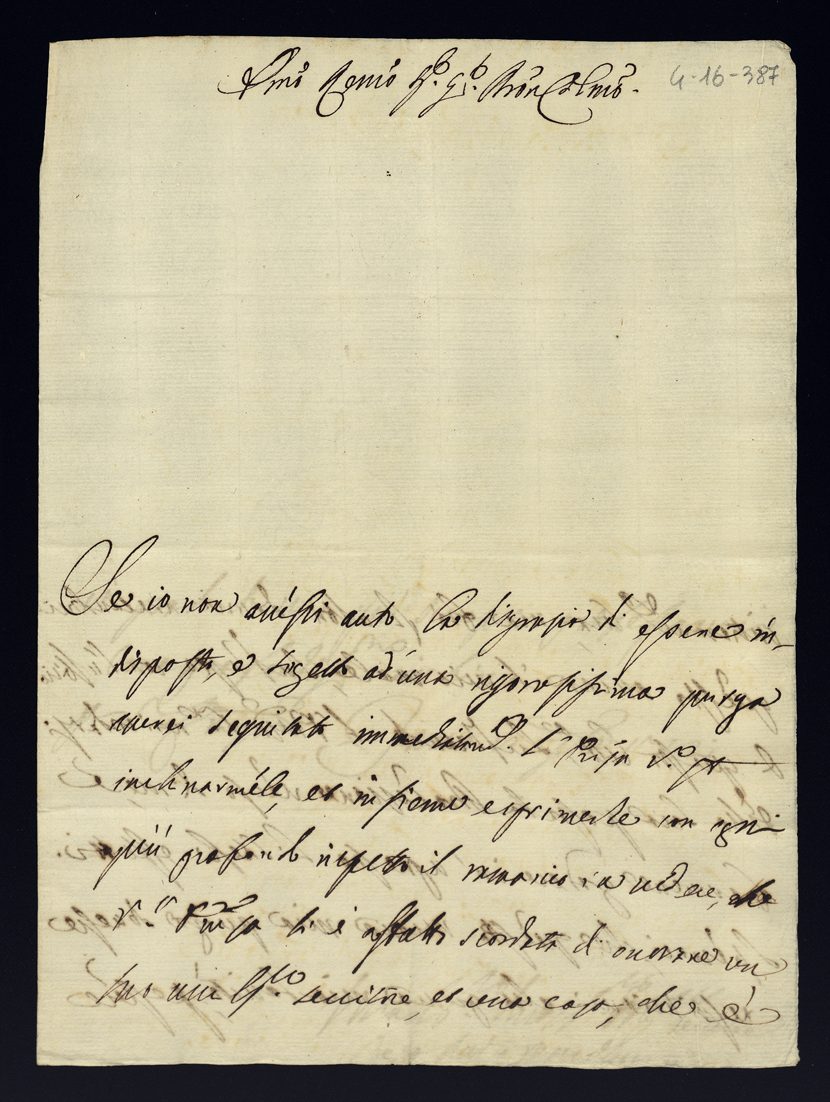 Emo Remo Sr. Sr. Pron Colmo.
4-16-387
Se io non avessi auto la disgrazia di essere in-
disposto, e sogetto ad una rigorosissima purga
averei seguitato immediatam. l' Em.za V.a p
inchinarmele, et insieme esprimerle con ogni
più profondo rispetto il ramarico in vedere, che
V.a Em.za si è affatto scordata di onorare un
suo umilissimo servitore, et una casa, che è